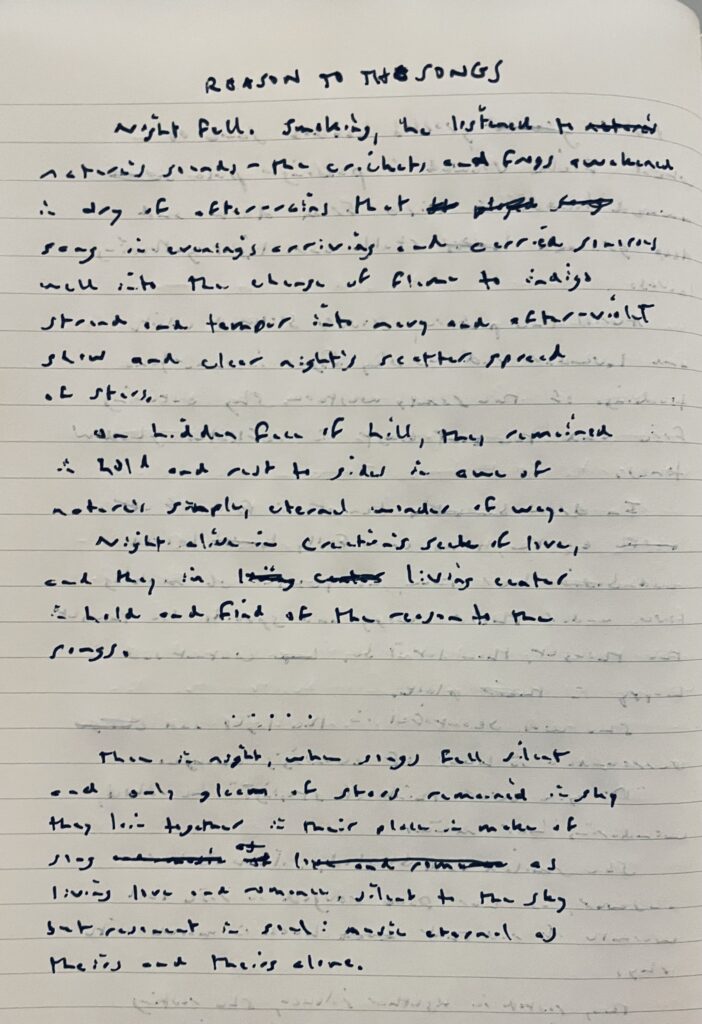 REASON TO THE SONGS
Night fell. Smoking, he listened to nature's
nature's sounds - the crickets and frogs awakened
in dry of after-rains that
song in evening's arriving and carried sonorous
well into the change of flame to indigo
strand and temper into navy and after-violet
show and clear night's scatter spread
of stars.
On hidden face of hill, they remained
in hold and rest to sides in awe of
nature's simple, eternal wonder of way.
Night alive in creation's seek of love,
and they in living center living center
in hold and find of the reason to the
songs.
.....
Then in night, when songs fell silent
and only gleam of stars remained in sky
they lain together in their place in make of
song and music of love and romance as
living love and romance, silent to the sky
but resonant in soul: music eternal as
theirs and theirs alone.